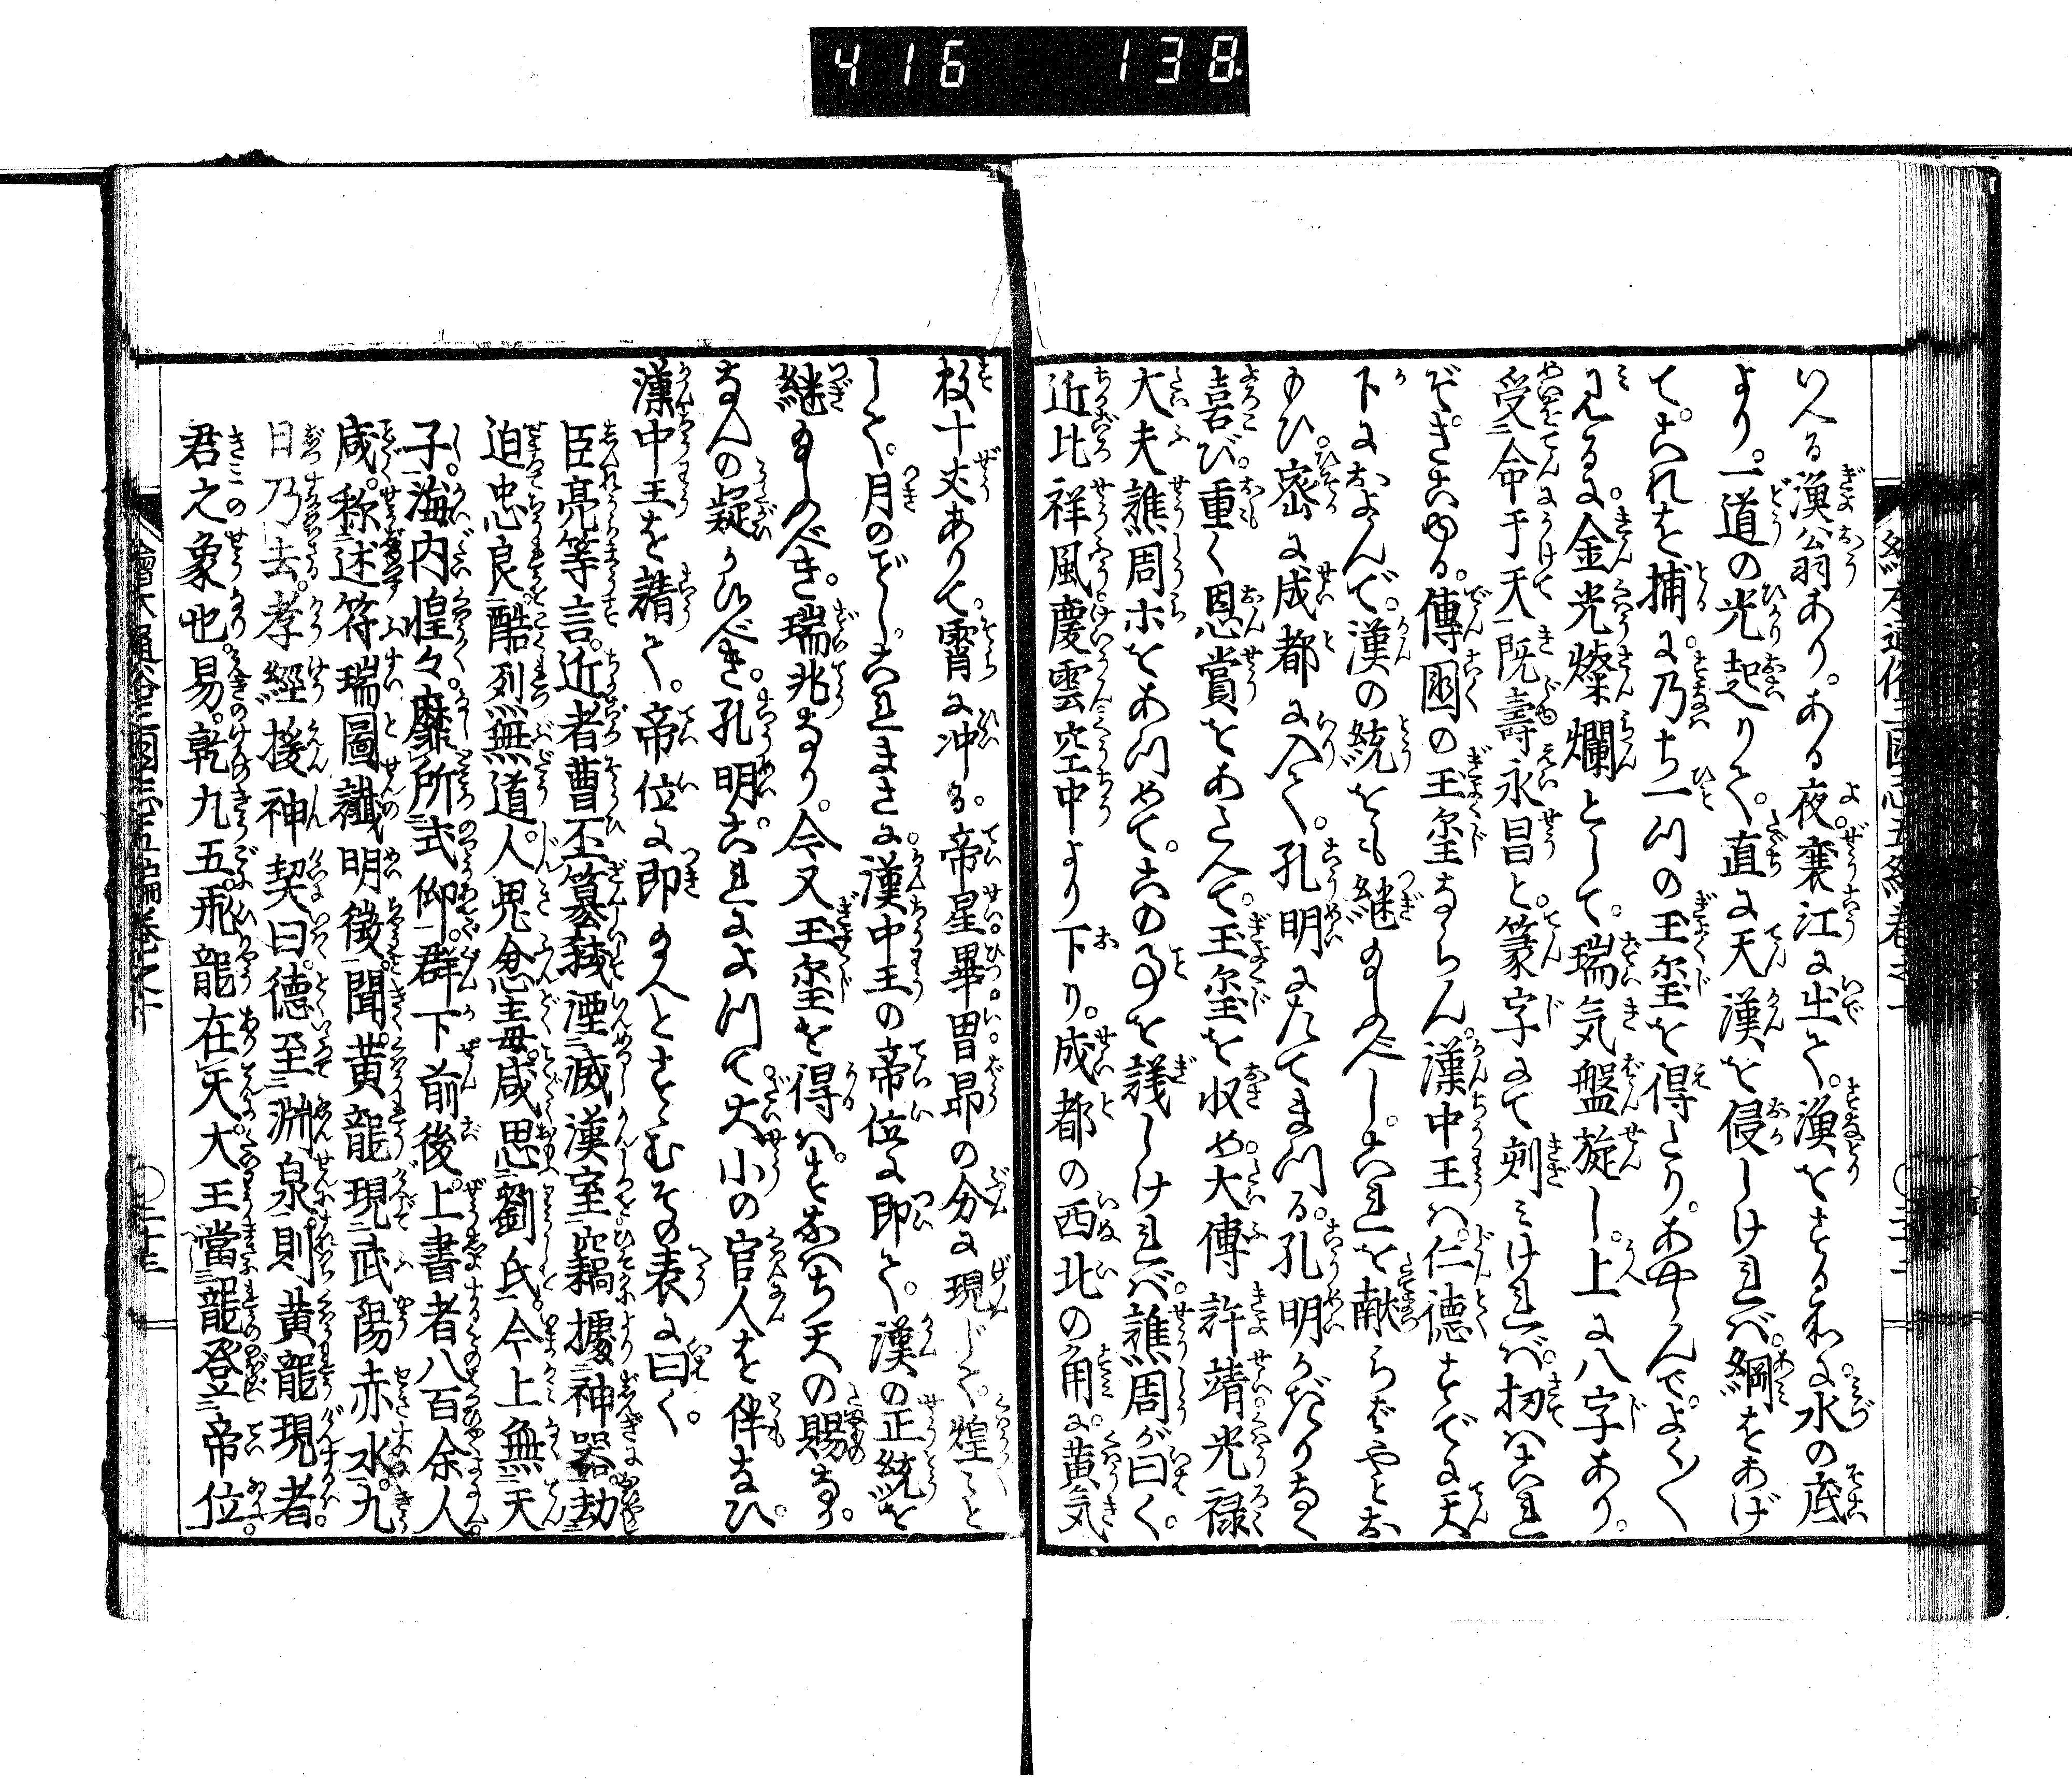 416 138
いへる漁翁あり。ある夜襄江に出て。漁をする処に。水の底
より。一道の光起りて。直に天漢を侵しけれバ。網をあげ
て。これを捕に。乃ち一つの玉璽を得たり。あやしんで。よく〳〵
見るに。金光燦爛として。瑞気盤旋し。上に八字あり。
受命于天既壽永昌と。篆字にて刻ミけれバ。扨ハこれ
ぞ。きこゆる。傳國の玉璽ならん。漢中王ハ。仁徳すでに天
下におよんで。漢の統をも継玉ふべし。これを献らばやとお
もひ。密に成都に入て。孔明にたてまつる。孔明かぎりなく
喜び。重く恩賞をあたへて。玉璽を収め。大傅許靖光禄
大夫譙周ホをあつめて。この事を議しけれバ。譙周が曰く。
近比祥風慶雲空中より下り。成都の西北の角に。黄気
数十丈ありて。霄に冲る。帝星畢胃昴の分に現じて。煌々と
して。月のごとし。これまさに。漢中王の帝位に即て。漢の正統を
継玉ふべき。瑞兆なり。今又玉璽を得ハ。すなハち天の賜なり。
なんの疑かあるべき。孔明これによつて大小の官人を伴なひ。
漢中王を請て。帝位に即玉へとすゝむその表に曰く。
臣亮等言。近者曹丕簒弑湮滅漢室竊據神器。劫
迫忠良。酷烈無道。人鬼忿毒。咸思劉氏。今上無天
子。海内惶々靡所式仰。群下前後。上書者八百余人
咸称述符瑞圖讖明徴。聞黄龍現武陽赤水。九
日乃去。孝經援神契曰。徳至淵泉則黄龍現者。
君之象也。易。乾九五。飛龍在天。大王當龍登帝位